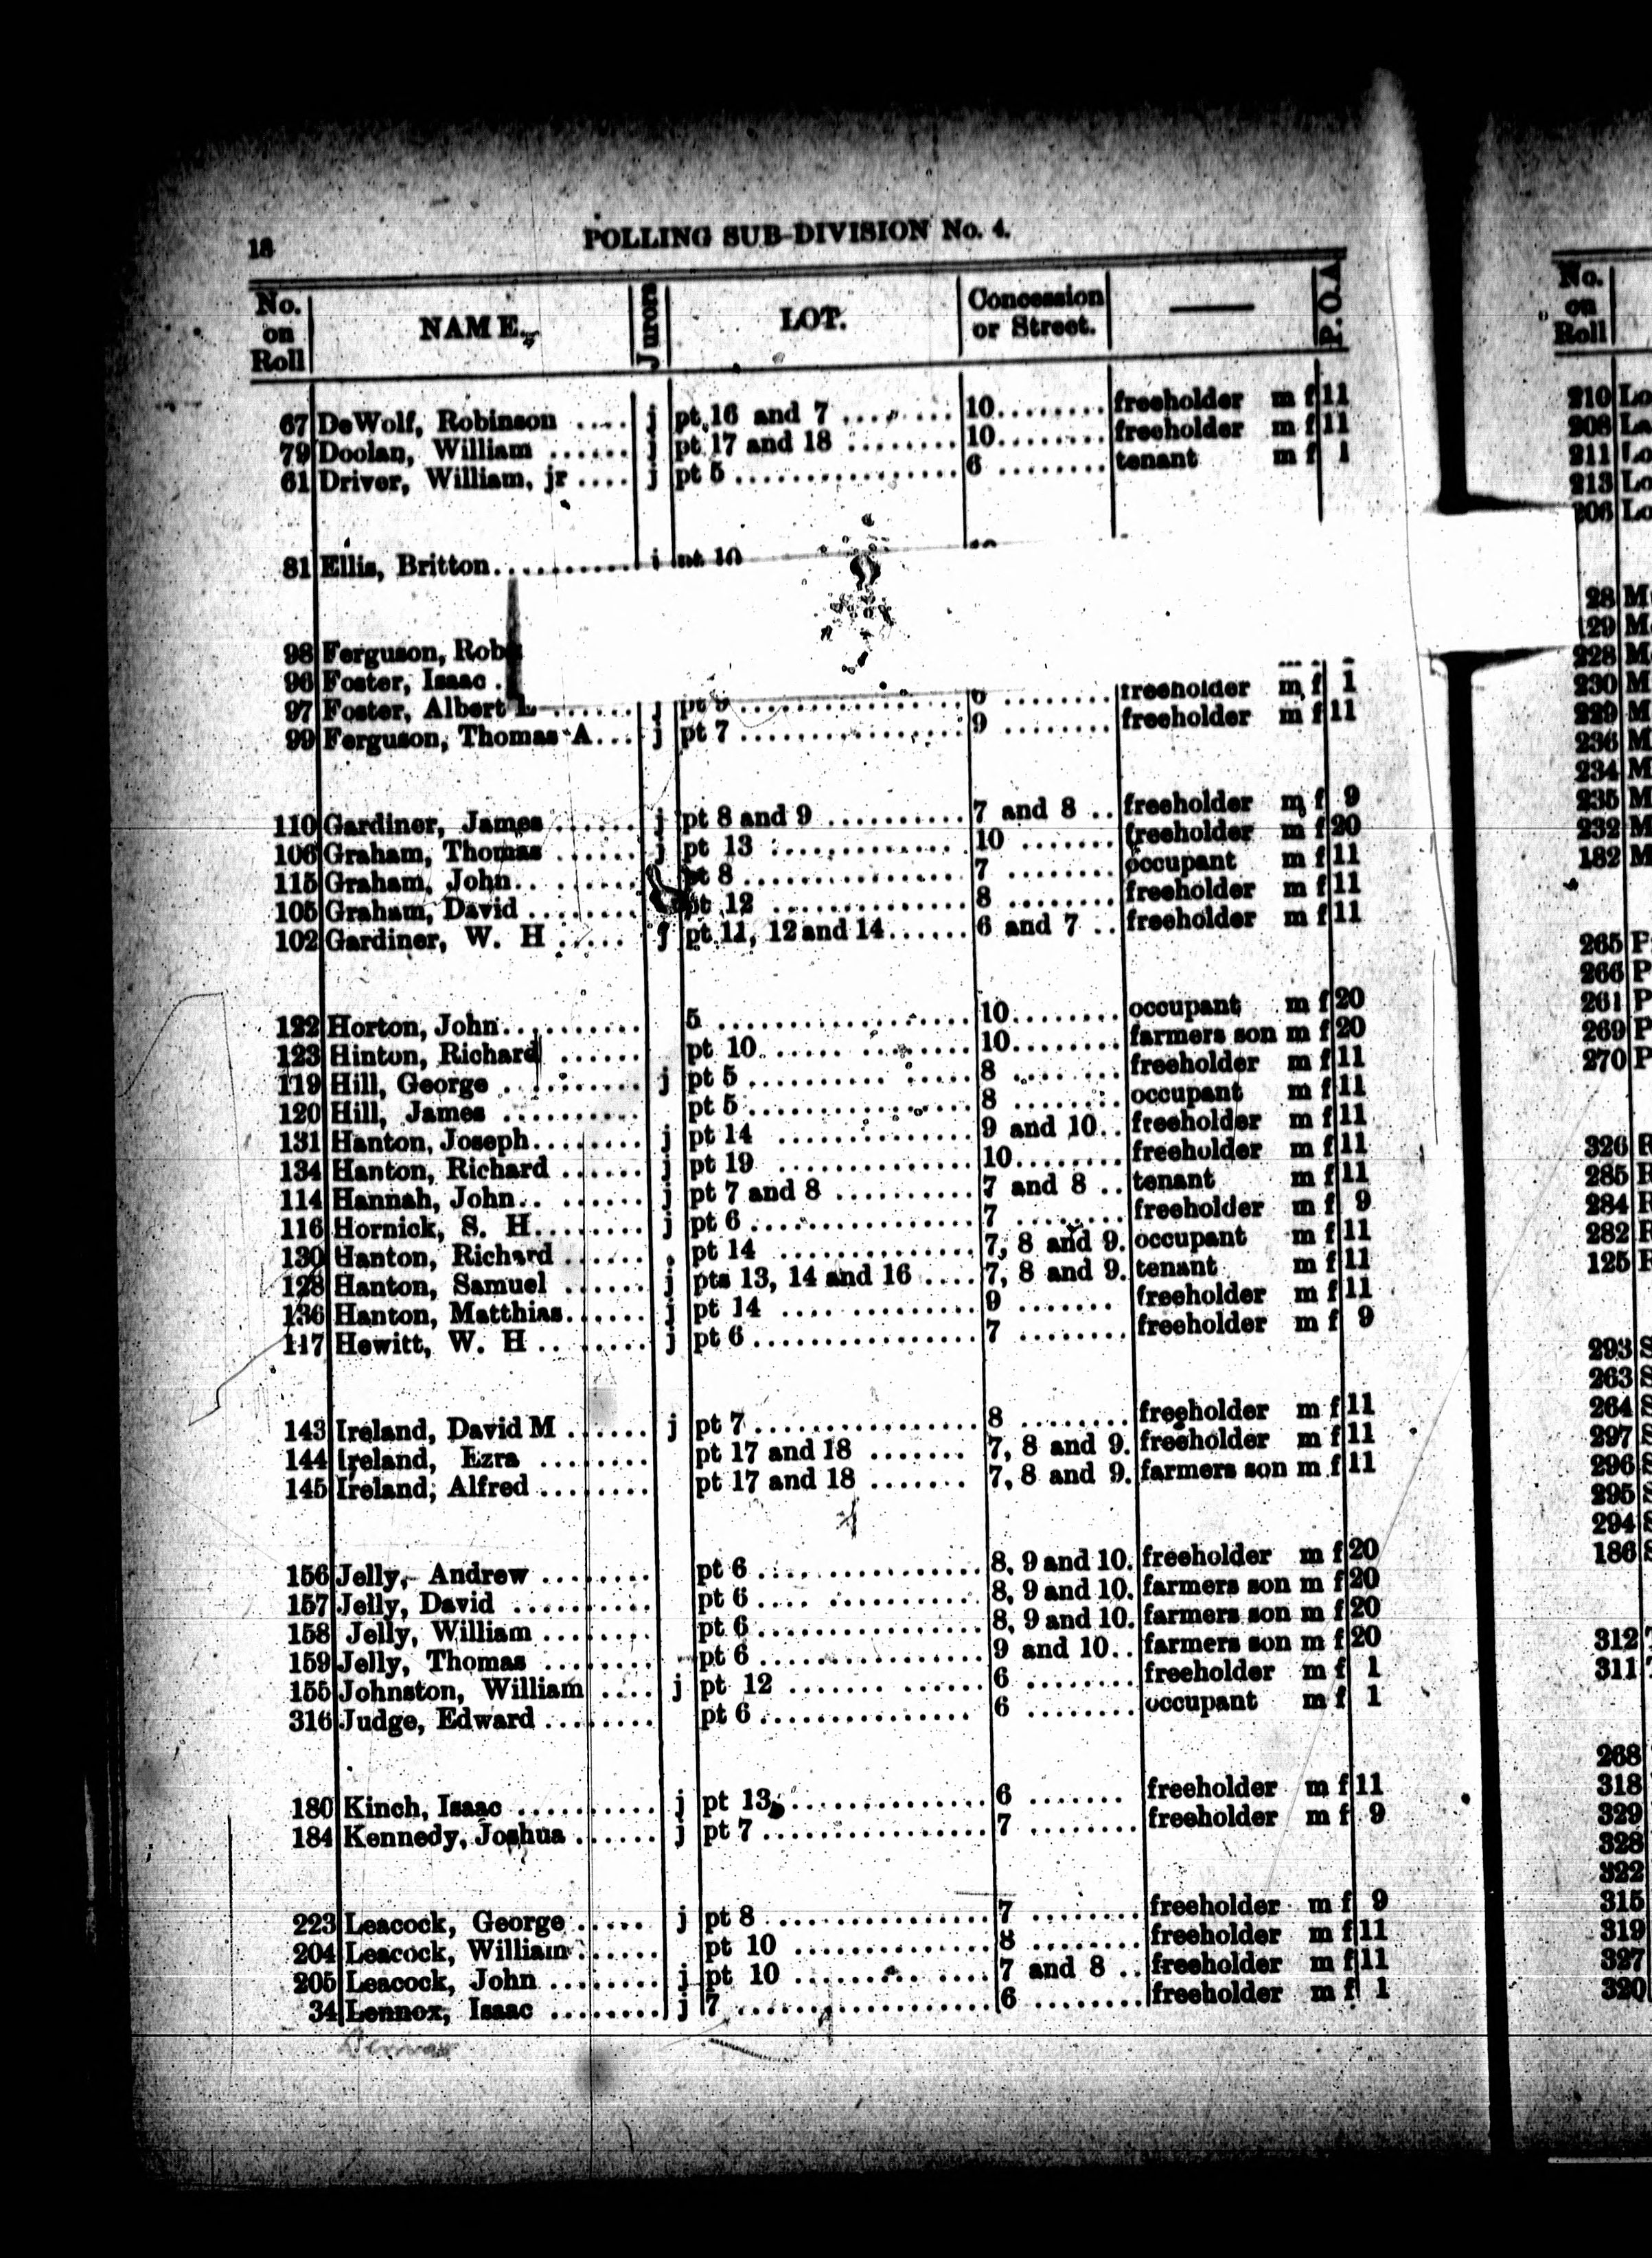 18 POLLING SUB-DIVISION No. 4.
No. on Roll NAME. Jurors LOT. Concession or Street. P. O. A
67 DeWolf, Robinson .... j pt 16 and 7 ........ 10........ freeholder m f 11
79 Doolan, William ...... j pt 17 and 18 ........ 10........ freeholder m f 11
61 Driver, William, jr .... j pt 5 ................ 6 ........ tenant m f 1
81 Ellis, Britton............ j pt 10
98 Ferguson, Rob
96 Foster, Isaac .
97 Foster, Albert ...... j pt 9 ................ 6 ........ freeholder m f 1
99 Ferguson, Thomas A... j pt 7 ................ 9 ........ freeholder m f 11
110 Gardiner, James ...... j pt 8 and 9 .......... 7 and 8 .. freeholder m f 9
106 Graham, Thomas ...... j pt 13 ............. 10 ....... freeholder m f 20
115 Graham, John.. ....... pt 8 ................ 7 ........ occupant m f 11
105 Graham, David ........ pt 12 .............. 8 ........ freeholder m f 11
102 Gardiner, W. H ..... j pt 11, 12 and 14...... 6 and 7 .. freeholder m f 11
122 Horton, John.......... 5 .................. 10........ occupant m f 20
123 Hinton, Richard ...... pt 10...... ........ 10........ farmers son m f 20
119 Hill, George .......... j pt 5 .......... ..... 8 ........ freeholder m f 11
120 Hill, James .......... pt 5................ 8 ........ occupant m f 11
131 Hanton, Joseph........ j pt 14 .............. 9 and 10.. freeholder m f 11
134 Hanton, Richard ...... j pt 19 .............. 10........ freeholder m f 11
114 Hannah, John.. ...... j pt 7 and 8 .......... 7 and 8 .. tenant m f 11
116 Hornick, S. H........ j pt 6 ................ 7 ........ freeholder m f 9
130 Hanton, Richard ...... pt 14 .............. 7, 8 and 9. occupant m f 11
128 Hanton, Samuel ...... j pts 13, 14 and 16 .... 7, 8 and 9. tenant m f 11
136 Hanton, Matthias...... j pt 14 .... .......... 9 ....... freeholder m f 11
117 Hewitt, W. H ........ j pt 6 ................ 7 ........ freeholder m f 9
143 Ireland, David M ...... j pt 7 ................ 8 ........ freeholder m f 11
144 Ireland, Ezra ........ pt 17 and 18 ....... 7, 8 and 9. freeholder m f 11
145 Ireland, Alfred ........ pt 17 and 18 ....... 7, 8 and 9. farmers son m f 11
156 Jelly, Andrew ........ pt 6 ................ 8, 9 and 10. freeholder m f 20
157 Jelly, David .......... pt 6 .... ........... 8, 9 and 10. farmers son m f 20
158 Jelly, William ........ pt 6 ................ 8, 9 and 10. farmers son m f 20
159 Jelly, Thomas ........ pt 6 ................ 9 and 10.. farmers son m f 20
155 Johnston, William .... j pt 12 ....... ...... 6 ........ freeholder m f 1
316 Judge, Edward ........ pt 6 ................ 6 ........ occupant m f 1
180 Kinch, Isaac .......... j pt 13 .............. 6 ....... freeholder m f 11
184 Kennedy, Joshua ...... j pt 7 ................ 7 ........ freeholder m f 9
223 Leacock, George ..... j pt 8 ................ 7 ........ freeholder m f 9
204 Leacock, William ...... pt 10 .............. 8 ........ freeholder m f 11
205 Leacock, John ........ j pt 10 .............. 7 and 8 .. freeholder m f 11
34 Lennox, Isaac ........ j 7 .................. 6 ........ freeholder m f 1
No. on Roll
210 Lo
208 La
211 Lo
213 Lo
206 Lo
28 M
129 M
228 M
230 M
229 M
236 M
234 M
235 M
232 M
182 M
265 P
266 P
261 P
269 P
270 P
326 R
285 R
284 R
282 R
125 R
293 S
263 S
264 S
297 S
296 S
295 S
294 S
186 S
312
311
268
318
329
328
322
315
319
327
320